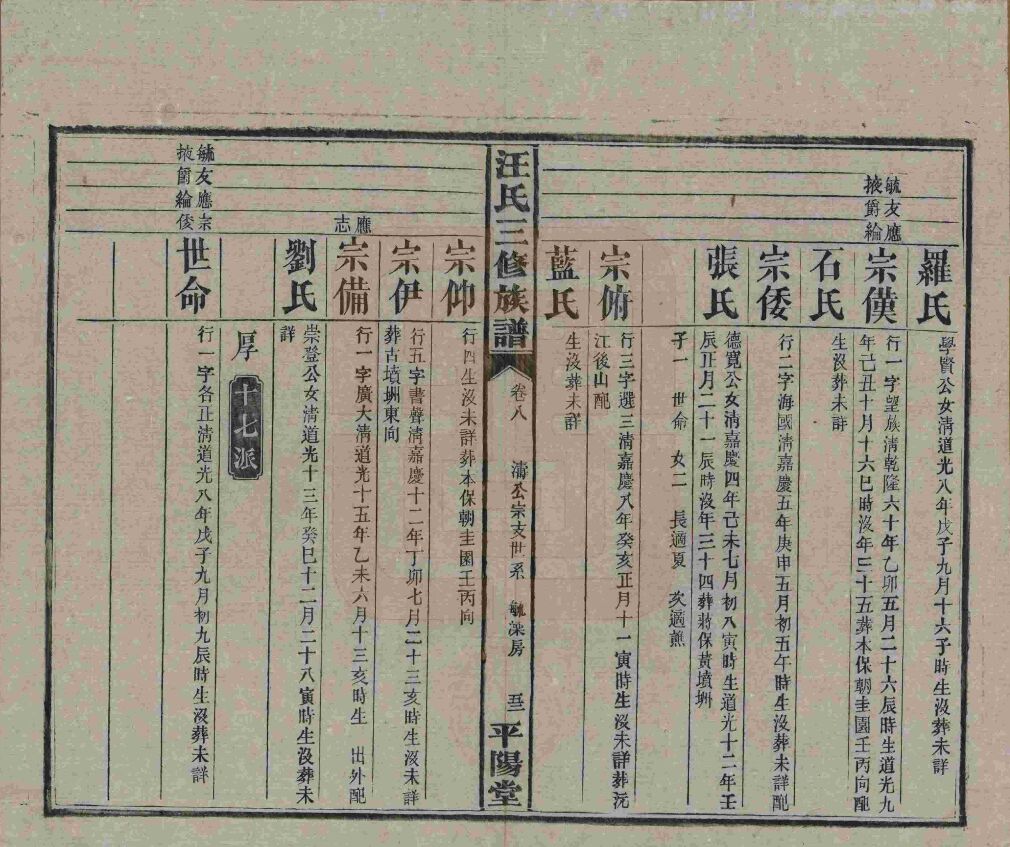 羅氏
學賢公女淸道光八年戊子九月十六子時生沒葬未詳
毓友應
掖爵綸
宗僙
行一字望族淸乾隆六十年乙卯五月二十六辰時生道光九
年己丑十月十六巳時沒年三十五葬本保朝圭園壬丙向配
石氏
生沒葬未詳
宗倭
行二字海國淸嘉慶五年庚申五月初五午時生沒葬未詳配
張氏
德寬公女淸嘉慶四年己未七月初八寅時生道光十二年壬
辰正月二十一辰時沒年三十四葬蔣保黃墳坿
子一 世命 女二 長適夏 次適熊
宗俯
行三字選三淸嘉慶八年癸亥正月十一寅時生沒未詳葬沅
江後山配
藍氏
生沒葬未詳
汪氏三修族譜
卷八
濤公宗支世系
毓濚房
平陽堂
宗仰
行四生沒未詳葬本保朝圭園壬丙向
宗伊
行五字書聲淸嘉慶十二年丁卯七月二十三亥時生沒未詳
葬古墳坿東向
應
志
宗備
行一字廣大淸道光十五年乙未六月十三亥時生 出外配
劉氏
崇登公女淸道光十三年癸巳十二月二十八寅時生沒葬未
詳
厚
十七派
毓友應宗
掖爵綸俊
世命
行一字各正淸道光八年戊子九月初九辰時生沒葬未詳